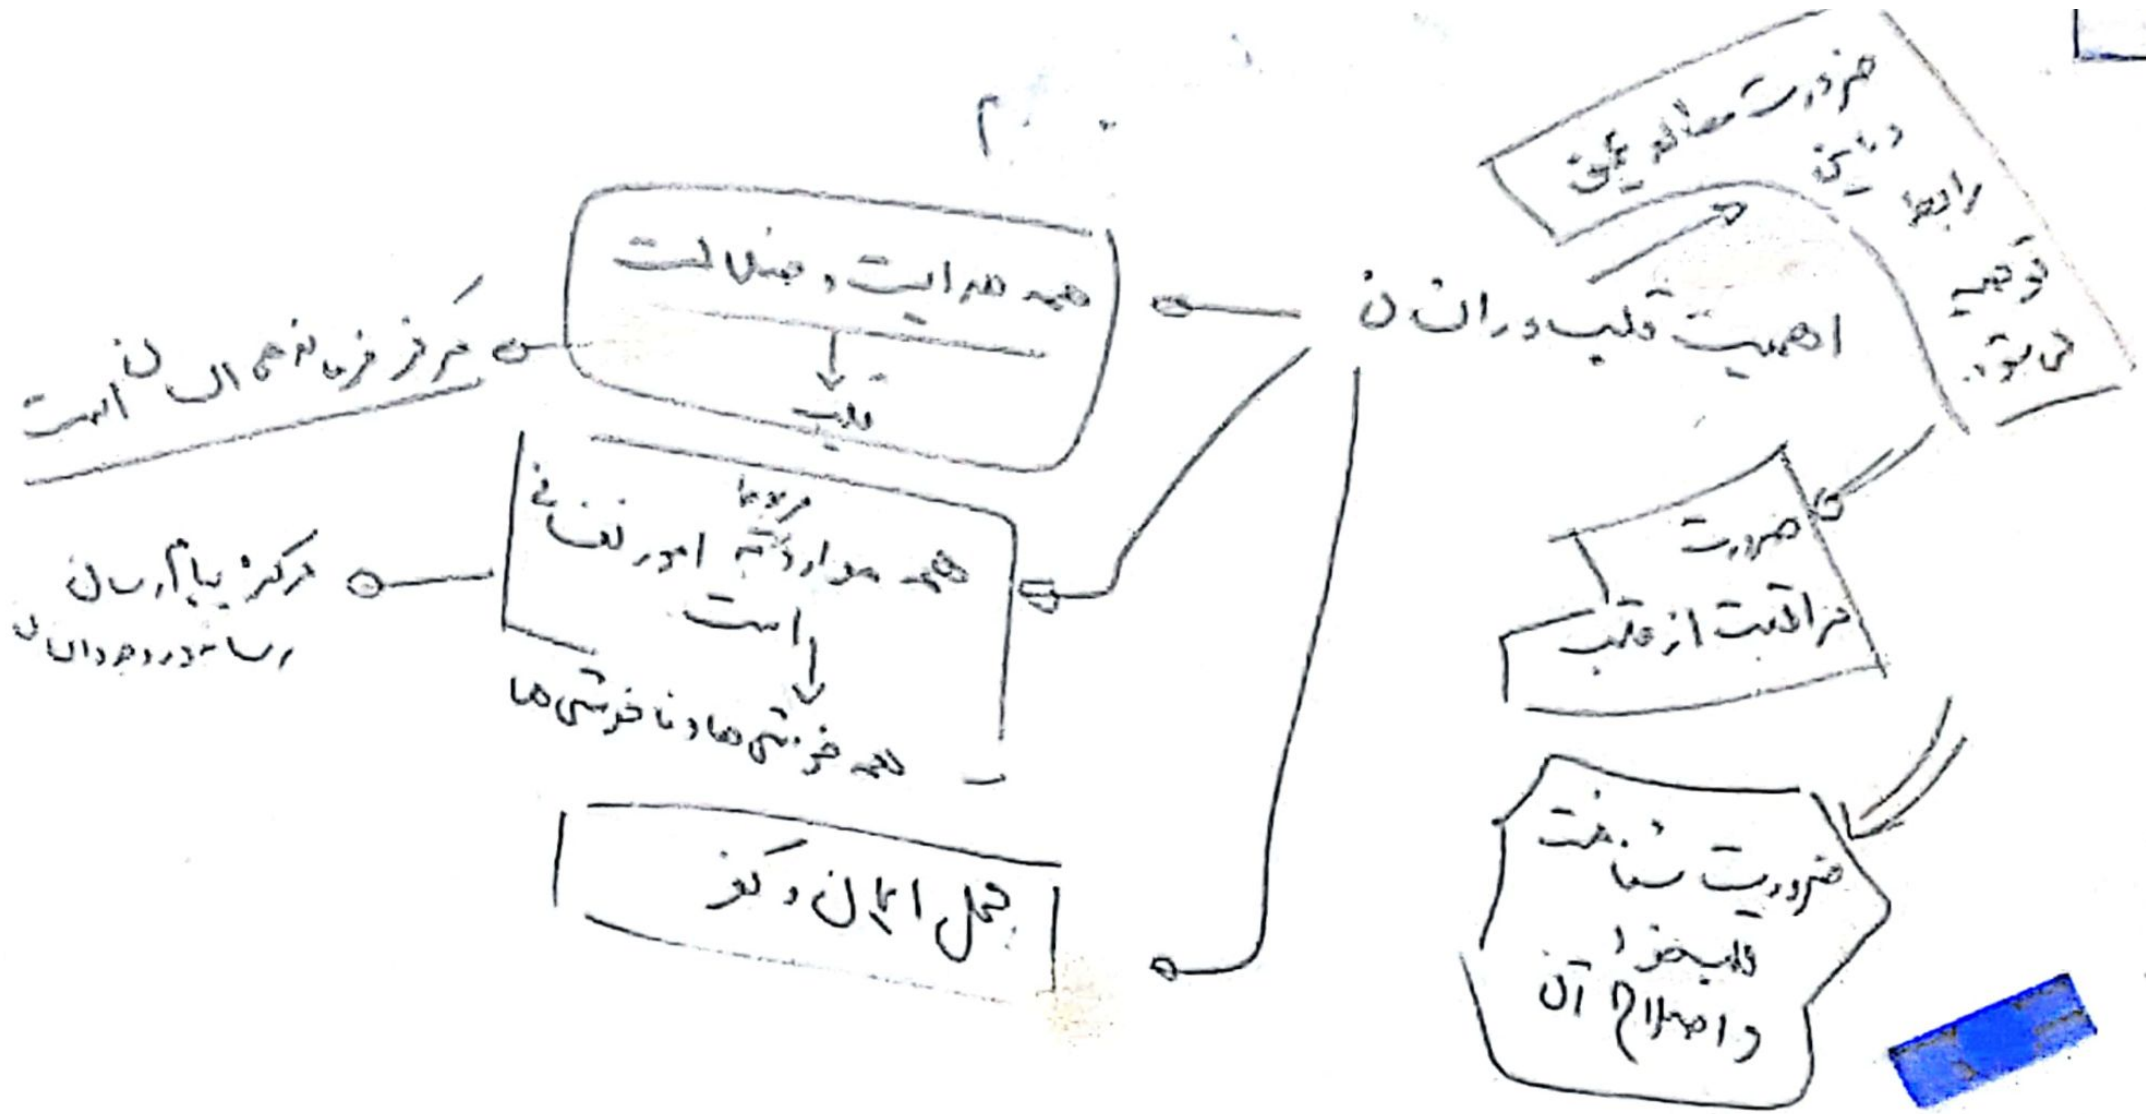 ضرورت مطالعه یکی
در این
رابطه
توصیه
می شود.
اهمیت قلب در انسان
همه هدایت و ضلالت
قلب
مرکز فرماندهی انسان است
همه موارد مربوط به امور نفسانی
است
همه خوشی ها و ناخوشی ها
مرکز پیام رسان
رسانه در وجود انسان
محل ایمان و کفر
ضرورت
مراقبت از قلب
ضرورت شناخت
قلب خود
و اصلاح آن